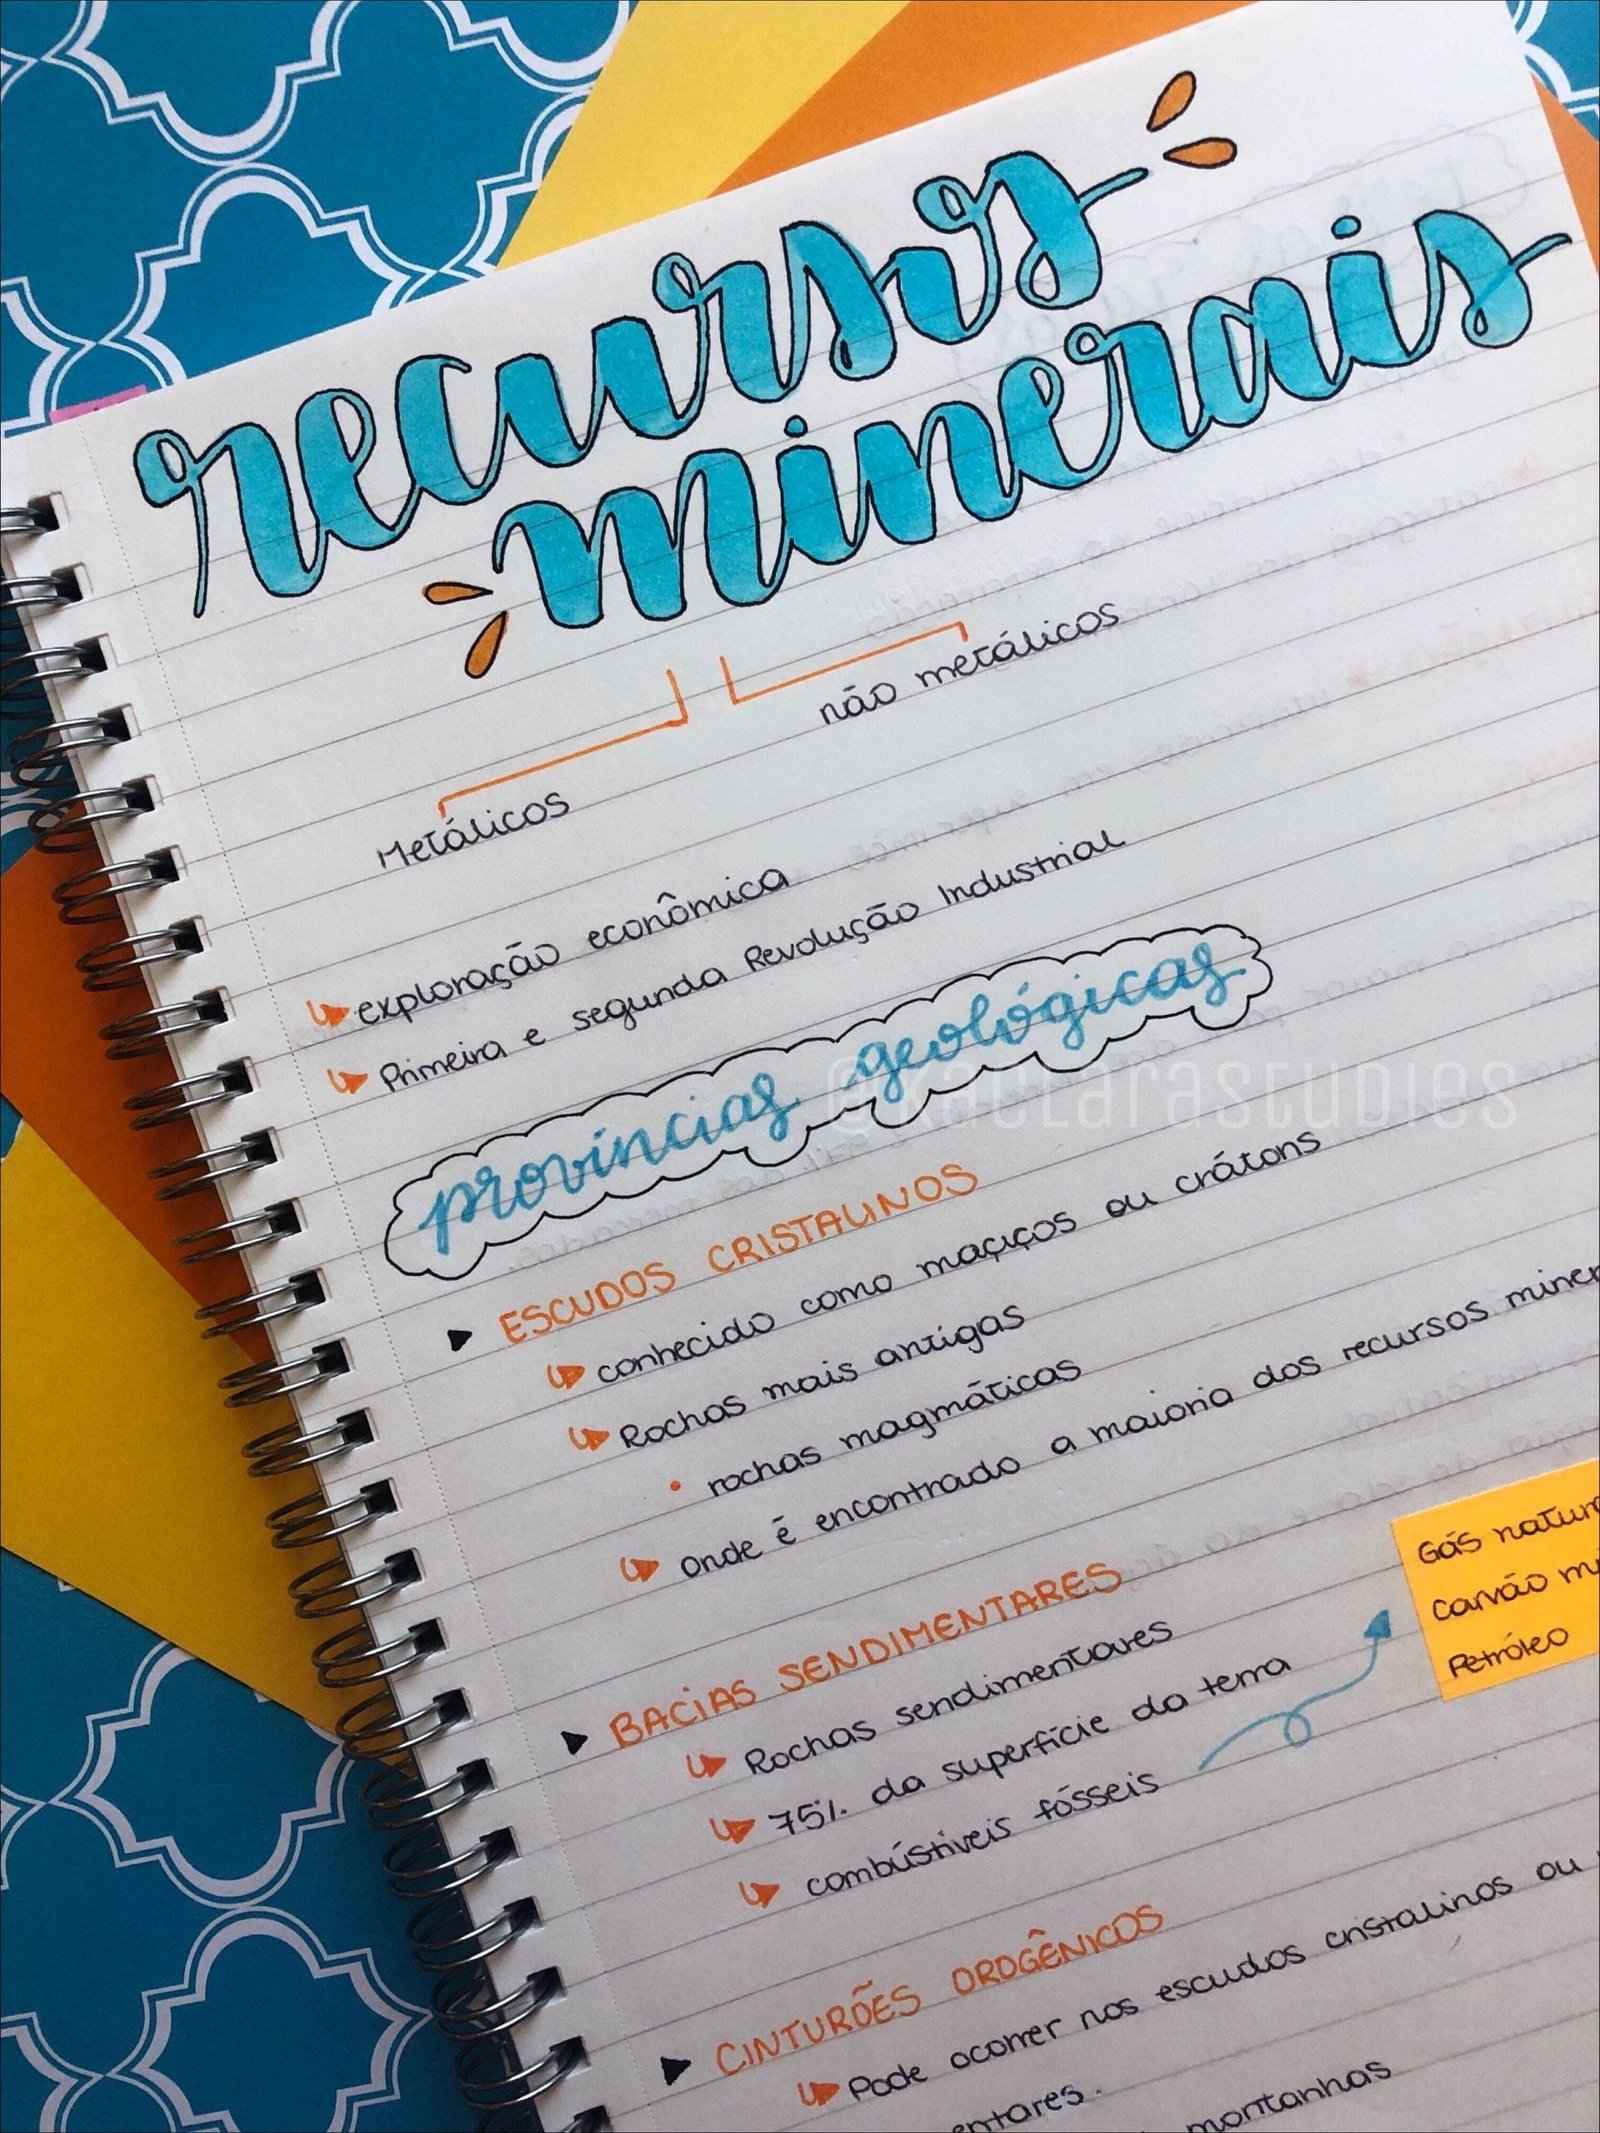 recursos
minerais
não metálicos
Metálicos
exploração econômica
Primeira e segunda Revolução Industrial
províncias geológicas
@kaclarastudies
ESCUDOS CRISTALINOS
conhecido como maçiços ou crátons
Rochas mais antigas
rochas magmáticas
onde é encontrado a maioria dos recursos miner
BACIAS SENDIMENTARES
Rochas sendimentares
75% da superfície da terra
combústiveis fósseis
Gás natur
Carvão mi
Petróleo
CINTURÕES OROGÊNICOS
Pode ocorrer nos escudos cristalinos ou
entares.
montanhas